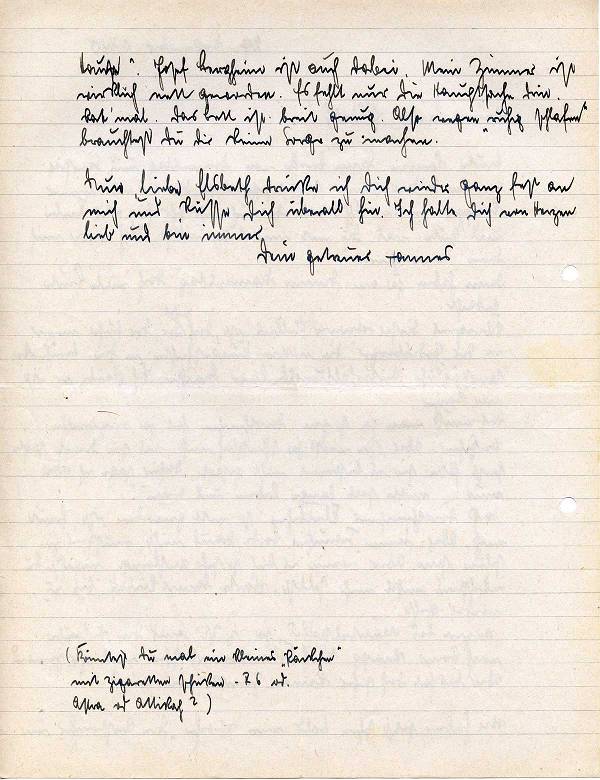 Josef Bergheim ist auch dabei. Mein Zimmer ist
wirklich nett geworden. Es fehlt nur die Hauptsache drin
. Das Bett ist breit genug. Also wegen "ruhig schlafen"
brauchtest Du Dir keine Sorge zu machen.
Nun, liebe Elsbeth drücke ich Dich wieder ganz fest an
mich und küsse Dich überall hin. Ich halte Dich von Herzen
lieb und bin immer
Dein getreuer Hannes
(Könntest Du mal ein kleines „Päckchen"
mit Zigaretten schicken - R6 od.
Astra od Attikah?)